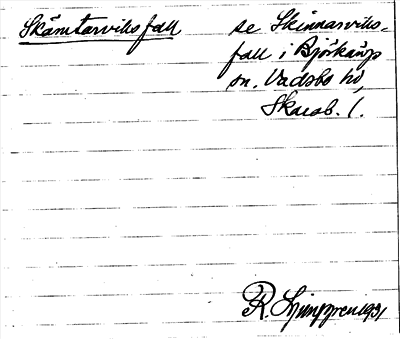 Skämtarviksfall se Skinnarviks-
fall i Björkäng
sn. Vadsbo hd,
Skarab. l.
R. Ljunggren 1931